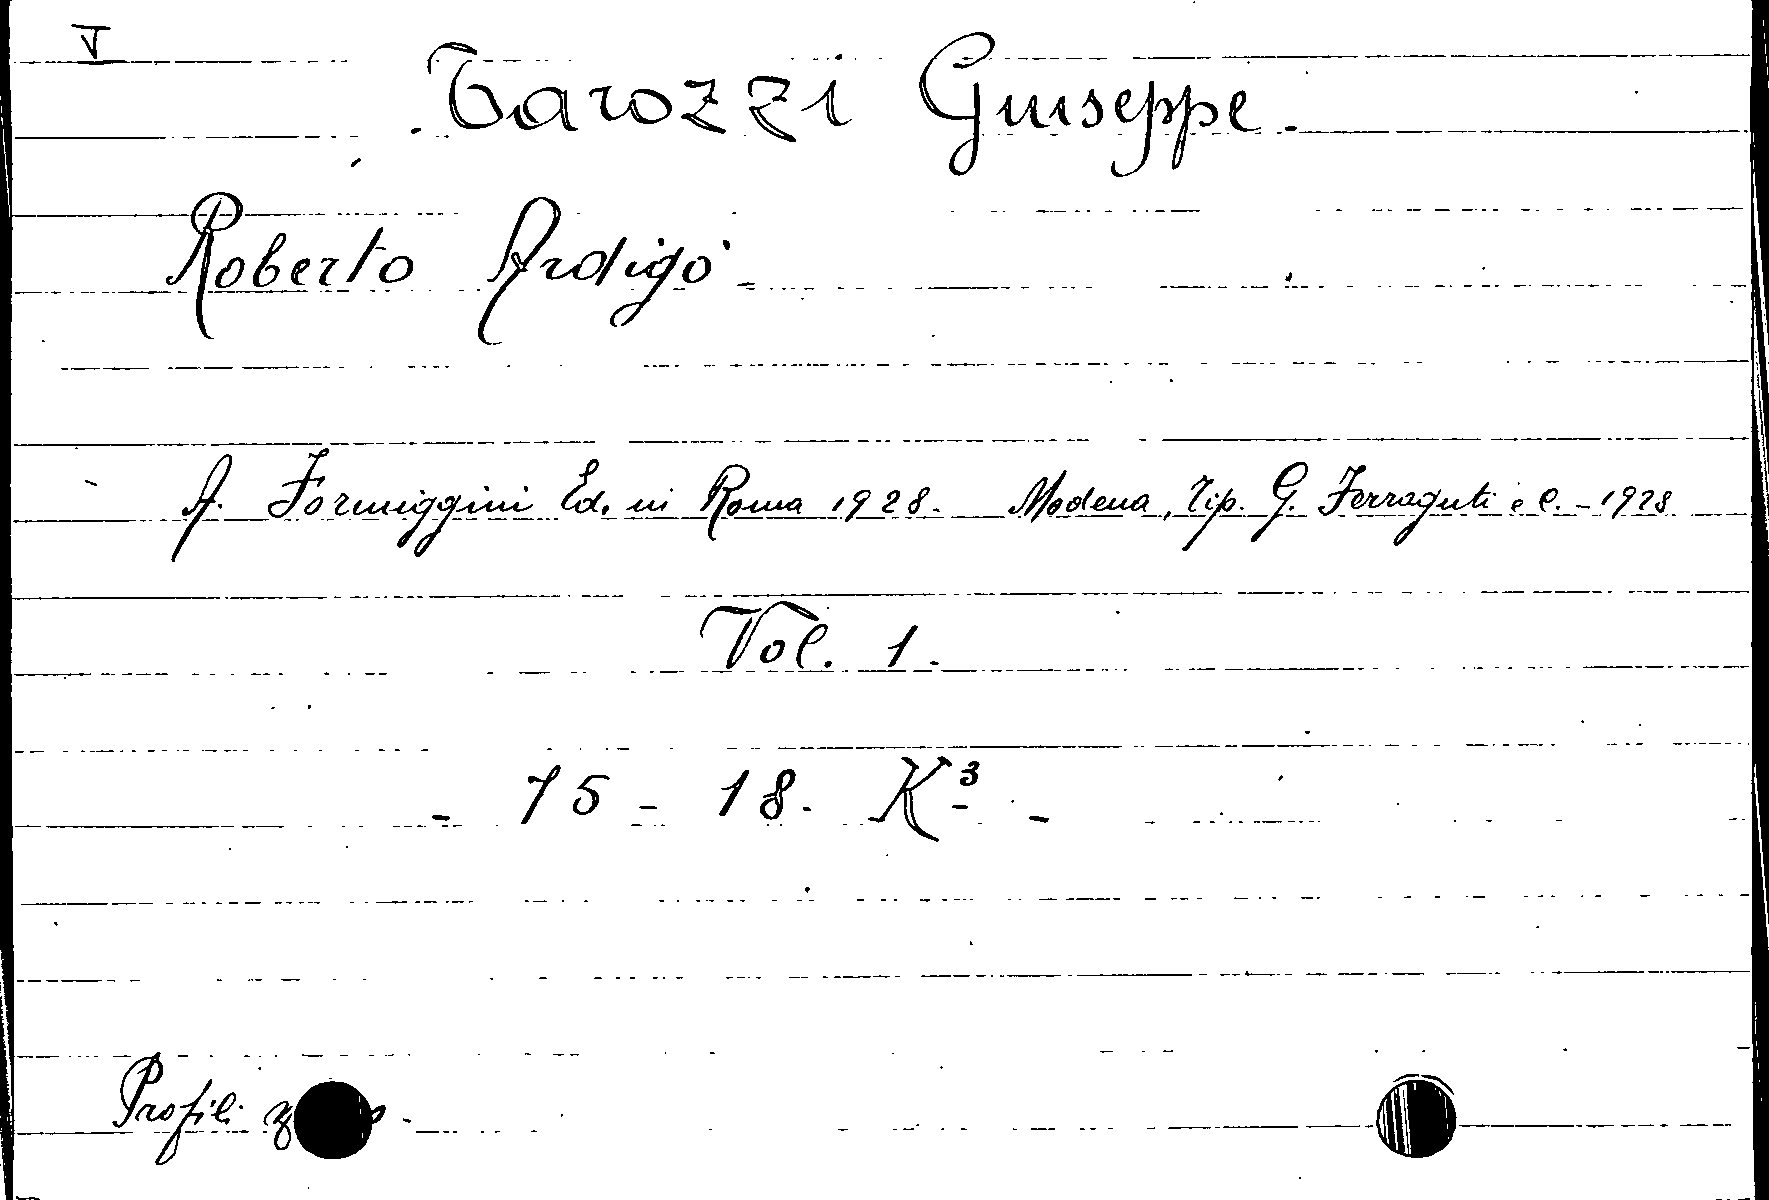 V
Tarozzi Giuseppe.
Roberto Ardigò -
A. Formiggini Ed. in Roma 1928. Modena, Tip. G. Ferraguti e C. - 1928
Vol. 1.
- 75 - 18. K³ -
Profili